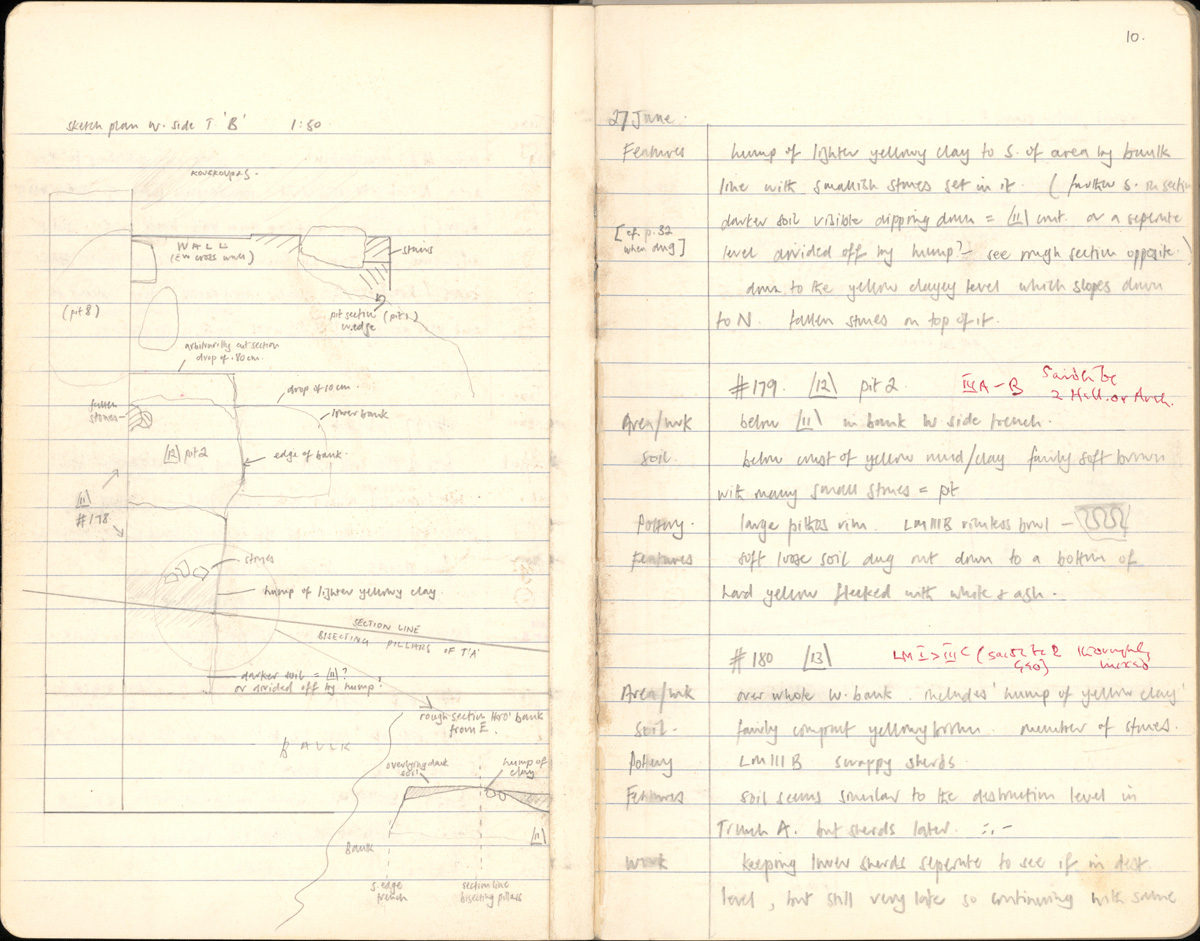 sketch plan w. side T 'B' 1:50
WALL
(E-W cross wall)
stairs
(pit 8)
pit section (pit 1)
w. edge
arbitrarily cut section
drop of .80cm.
drop of 10cm.
lower bank
fallen
stones
12 pit 2
edge of bank.
11
#178
stones
hump of lighter yellowy clay
SECTION LINE
BISECTING PILLARS OF T'A'
darker soil = 11?
or divided off by hump?
rough section thro' bank
from E.
BAULK
overlying dark
soil
hump of
clay
11
Bank
S. edge
trench
section line
bisecting pillars
10.
27 June.
Features hump of lighter yellowy clay to S. of area by baulk
line with smallish stones set in it. (further S. in section
darker soil visible dipping down = 11 cont. or a seperate
[cf. p. 32
when dug]
level divided off by hump? - see rough section opposite.)
down to the yellow clayey level which slopes down
to N. fallen stones on top of it.
#179. 12 pit 2. IIIA-B
2 Hell. or Arch.
Area/wk below 11 in bank W. side trench.
Soil. below crust of yellow mud/clay fairly soft brown
with many small stones = pit
Pottery. large pithos rim. LMIIIB rimless bowl -
Features soft loose soil dug out down to a bottom of
hard yellow flecked with white & ash.
#180 13 LM I > III C
thoroughly
mixed
Area/wk over whole w. bank. includes 'hump of yellow clay'
Soil. fairly compact yellowy brown. number of stones.
Pottery LM III B scrappy sherds.
Features soil seems similar to the destruction level in
Trench A. but sherds later. :. -
Work keeping lower sherds seperate to see if in dest.
level, but still very late so continuing with same